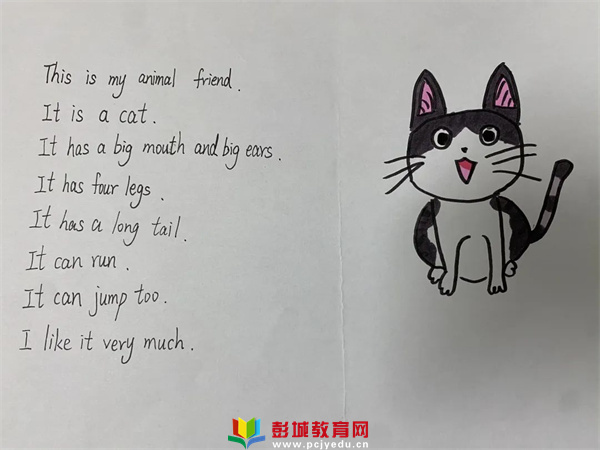 This is my animal friend.
It is a cat.
It has a big mouth and big ears.
It has four legs.
It has a long tail.
It can run.
It can jump too.
I like it very much.
彭城教育网
www.pcjyedu.cn